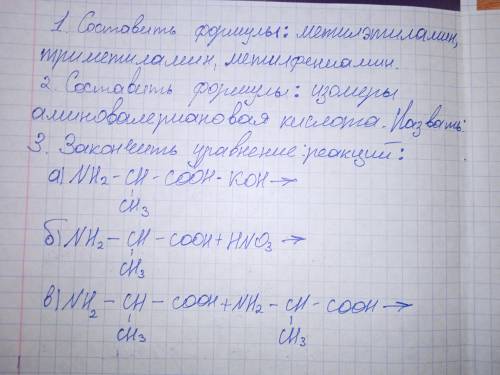 1. Составить формулы: метилэтиламин,
триметиламин, метилфениламин.
2. Составить формулы: изомеры
аминовалериановая кислота. Назвать.
3. Закончить уравнение реакций:
а) NH2 - CH - COOH - KOH →
CH3
б) NH2 - CH - COOH + HNO3 →
CH3
в) NH2 - CH - COOH + NH2 - CH - COOH →
CH3 CH3